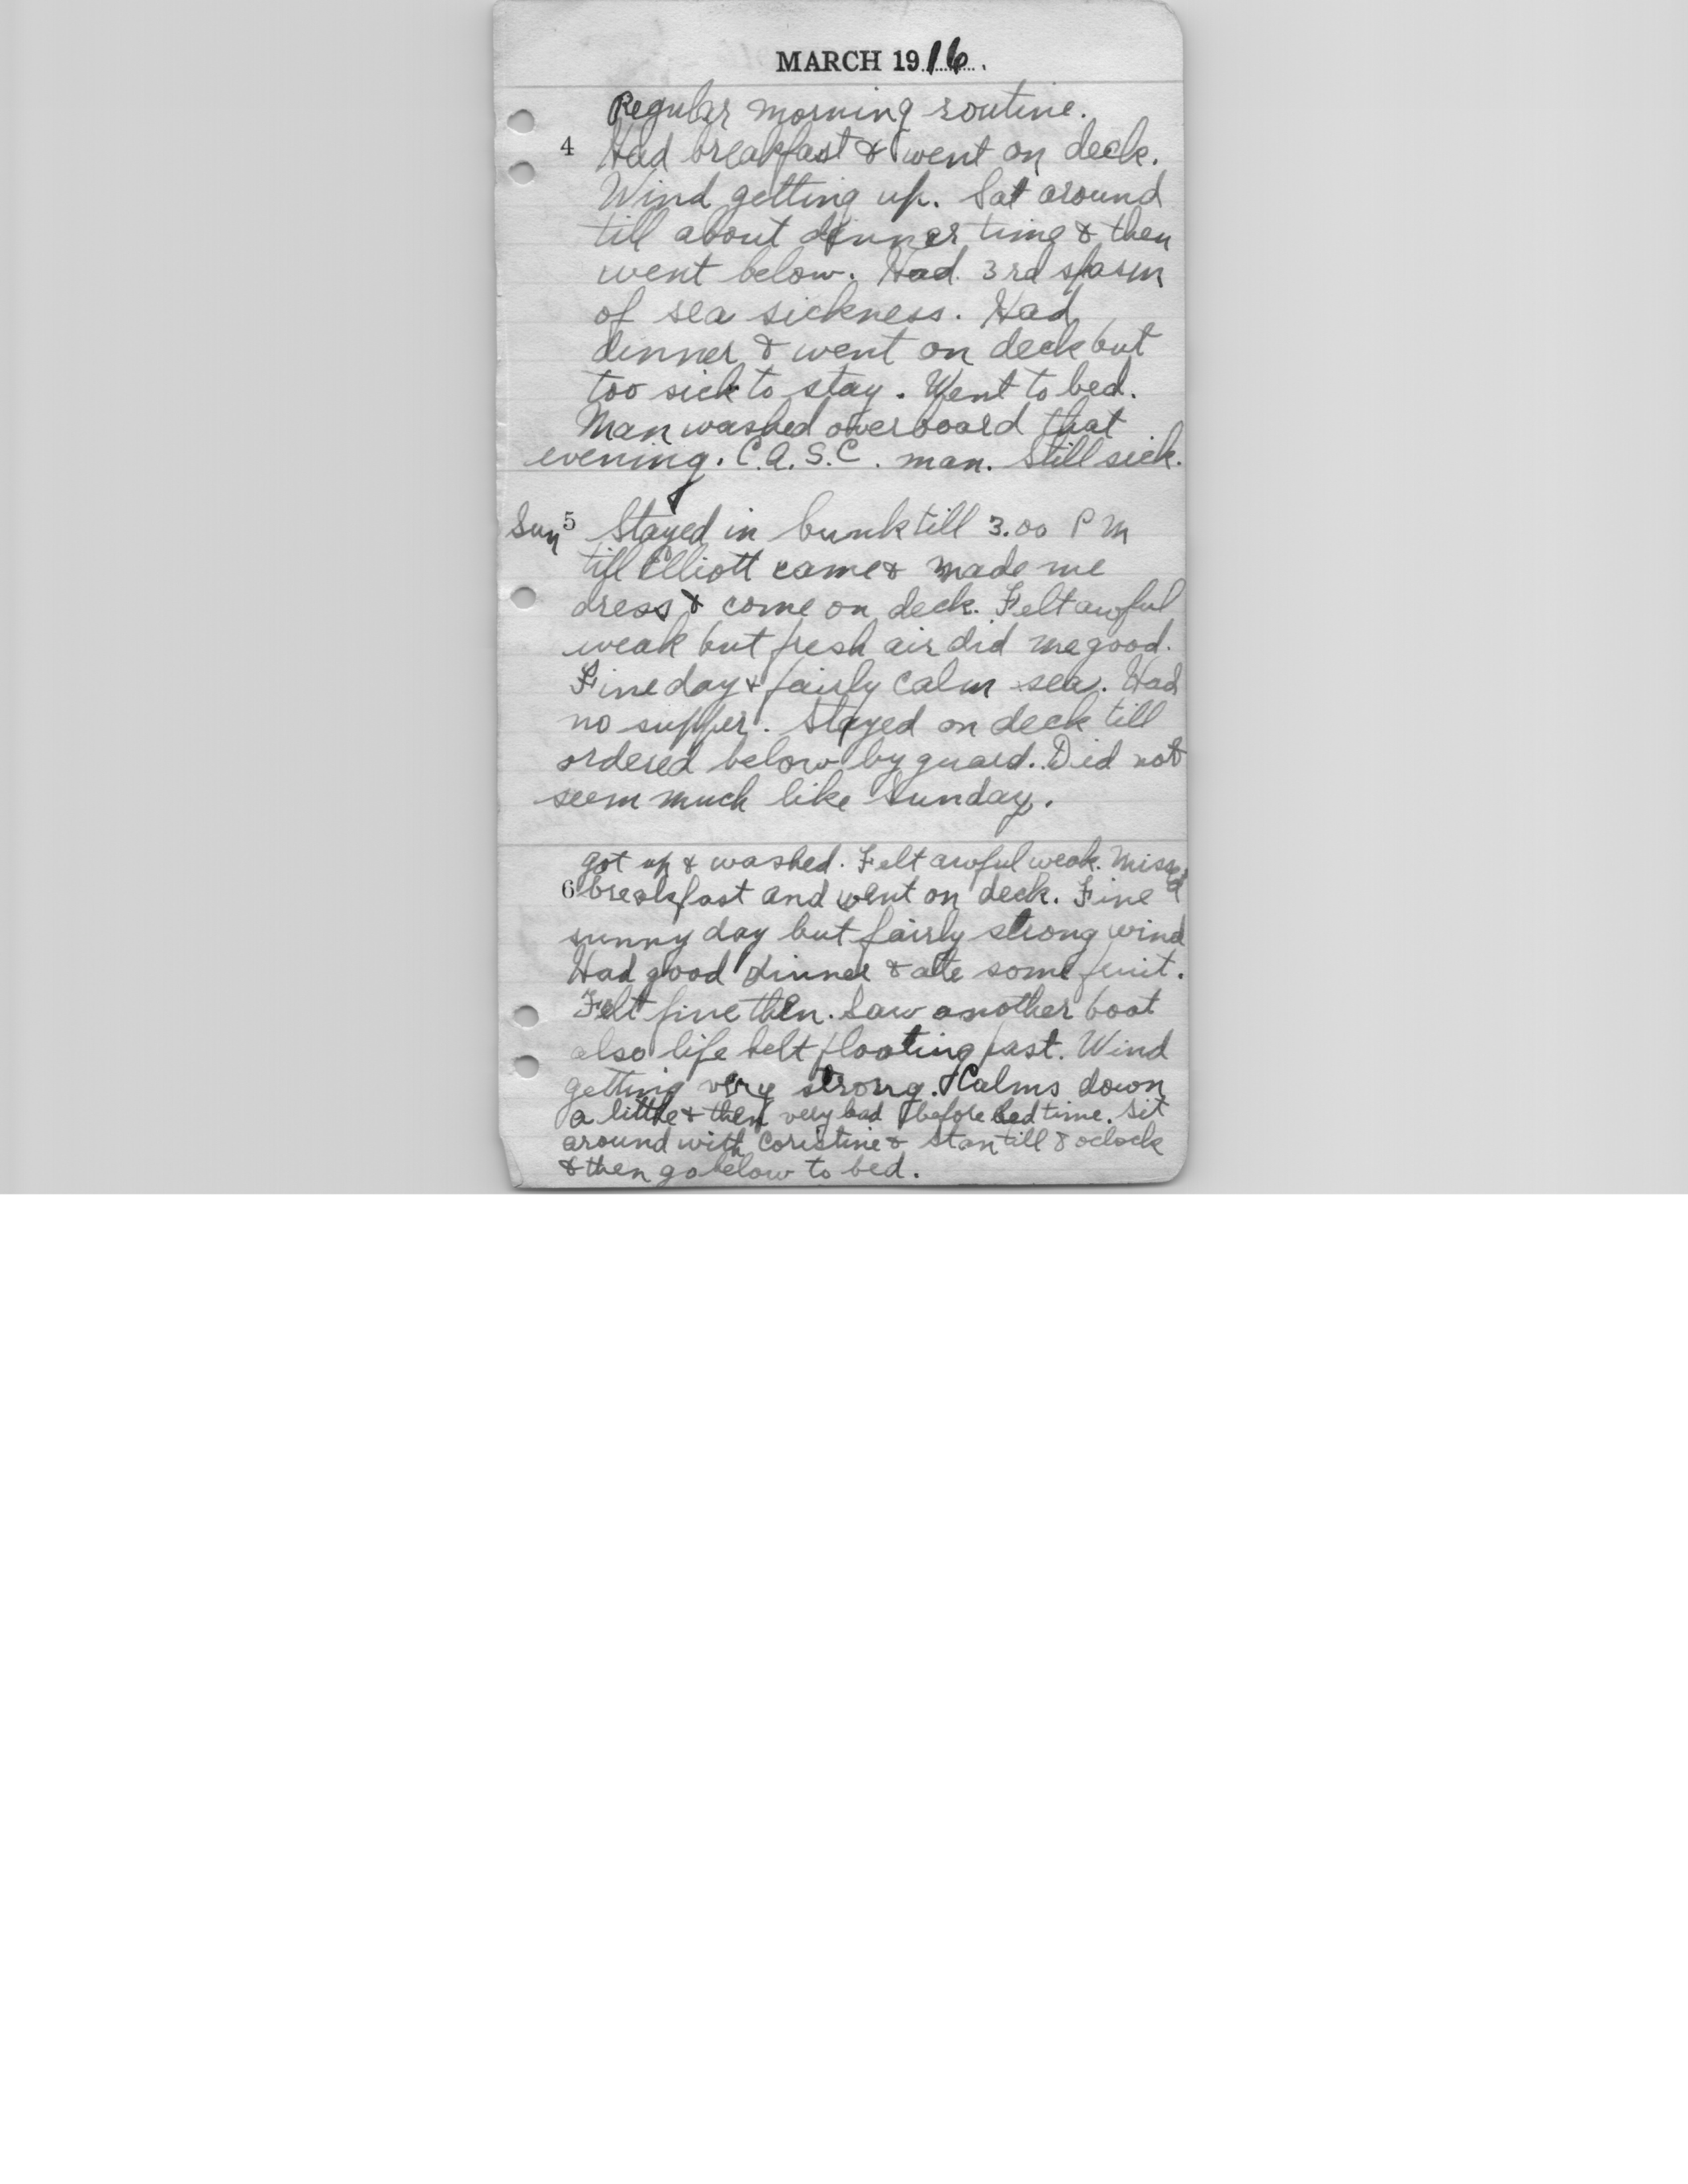 MARCH 1916.
Regular morning routine.
4 Had breakfast & went on deck.
Wind getting up. Sat around
till about dinner time & then
went below. Had 3rd spasm
of sea sickness. Had
dinner & went on deck but
too sick to stay. Went to bed.
Man washed overboard that
evening. C.A.S.C. man. Still sick.
Sun 5 Stayed in bunk till 3.00 PM
till Elliott came & made me
dress & come on deck. Felt awful
weak but fresh air did me good.
Fine day & fairly calm sea. Had
no supper. Stayed on deck till
ordered below by guard. Did not
seem much like Sunday.
got up & washed. Felt awful weak. Missed
6 breakfast and went on deck. Fine
sunny day but fairly strong wind
Had good dinner & ate some fruit.
Felt fine then. Saw another boat
also life belt floating past. Wind
getting very strong. Calms down
a little & then very bad before bed time. Sit
around with Coristine & Stan till 8 oclock
& then go below to bed.